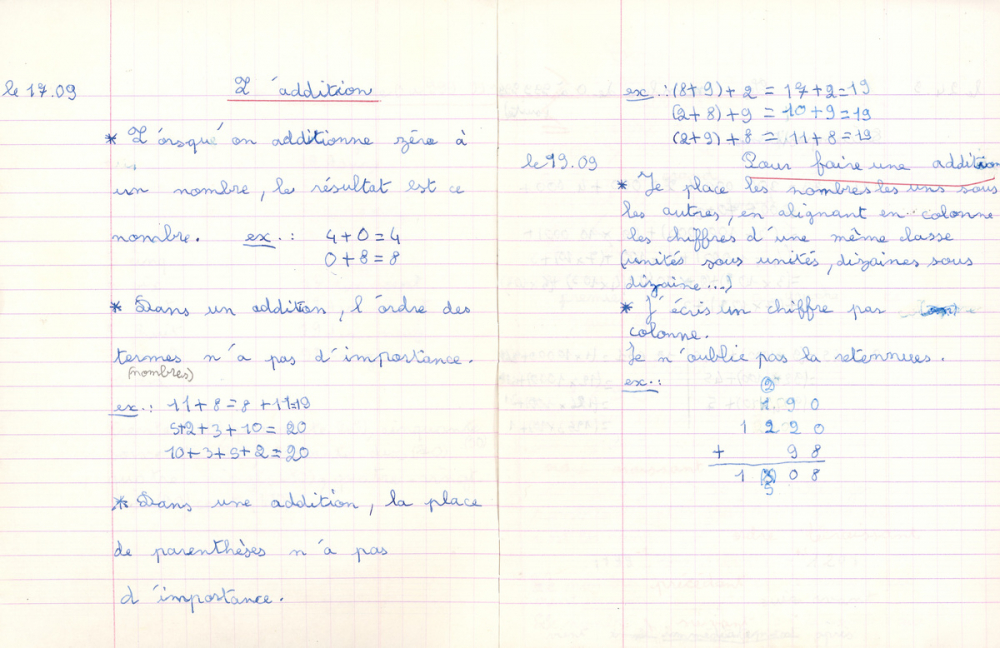 le 17.09
L'addition
* Lorsqu'on additionne zéro à
un nombre, le résultat est ce
nombre. ex.: 4+0=4
0+8=8
* Dans un addition, l'ordre des
termes n'a pas d'importance.
(nombres)
ex.: 11+8=8+11=19
5+2+3+10=20
10+3+5+2=20
* Dans une addition, la place
de parenthèses n'a pas
d'importance.
ex.: (8+9)+2 = 17+2=19
(2+8)+9 = 10+9=19
(2+9)+8 = 11+8=19
le 19.09
Pour faire une addition
* Je place les nombres les uns sous
les autres, en alignant en colonne
les chiffres d'une même classe
(unités sous unités, dizaines sous
dizaine...)
* J'écris un chiffre par
colonne.
Je n'oublie pas la retennues.
ex.:
190
1220
+ 98
1 08
5